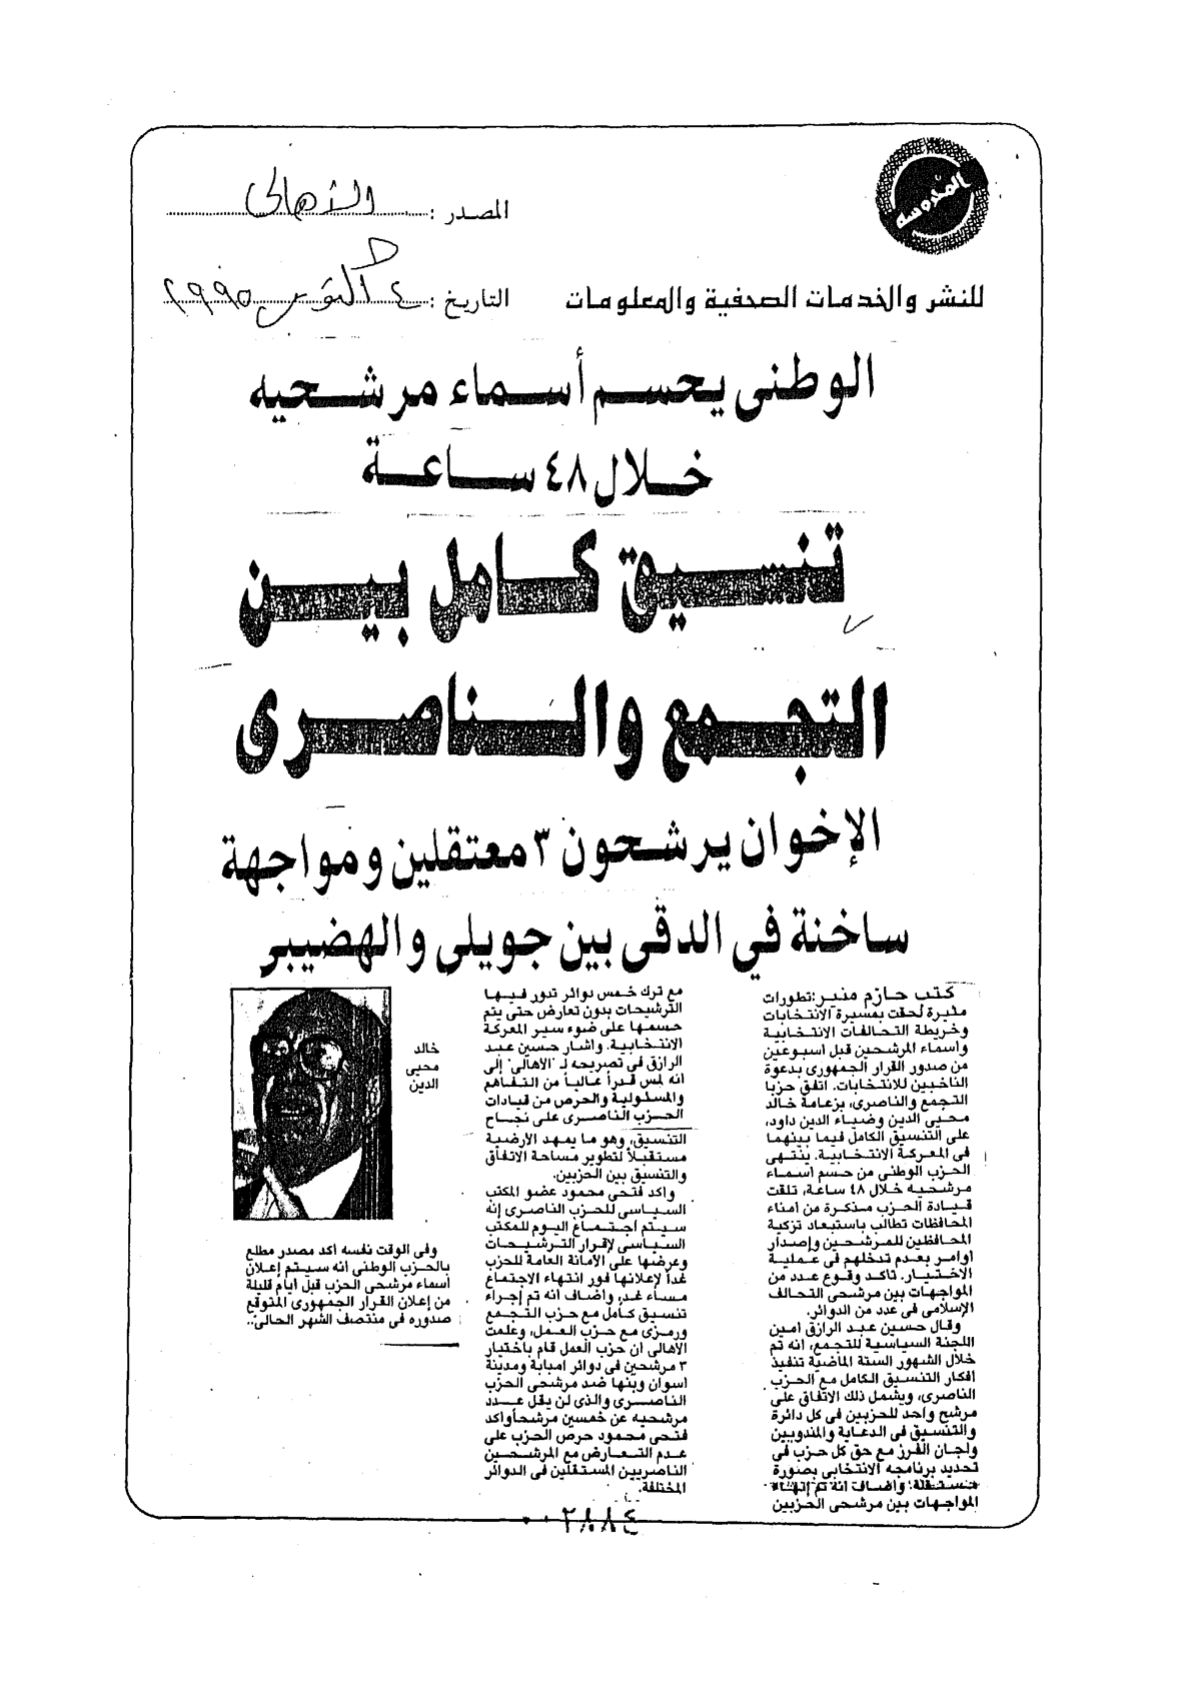 المدروسه
المصدر : الأهالى
للنشر والخدمات الصحفية والمعلومات
التاريخ : ٤ أكتوبر ١٩٩٥
الوطنى يحسم أسماء مرشحيه
خلال ٤٨ ساعة
تنسيق كامل بين
التجمع والناصرى
الإخوان يرشحون ٣ معتقلين ومواجهة
ساخنة في الدقى بين جويلى والهضيبى
كتب حازم منير: تطورات
مثيرة لحقت بمسيرة الانتخابات
وخريطة التحالفات الانتخابية
واسماء المرشحين قبل اسبوعين
من صدور القرار الجمهورى بدعوة
الناخبين للانتخابات. اتفق حزبا
التجمع والناصرى، بزعامة خالد
محيى الدين وضياء الدين داود،
على التنسيق الكامل فيما بينهما
فى المعركة الانتخابية. ينتهى
الحزب الوطنى من حسم اسماء
مرشحيه خلال ٤٨ ساعة، تلقت
قيادة الحزب مذكرة من امناء
المحافظات تطالب باستبعاد تزكية
المحافظين للمرشحين وإصدار
أوامر بعدم تدخلهم فى عملية
الاختيار. تأكد وقوع عدد من
المواجهات بين مرشحى التحالف
الإسلامى فى عدد من الدوائر.
وقال حسين عبد الرازق امين
اللجنة السياسية للتجمع، انه تم
خلال الشهور الستة الماضية تنفيذ
افكار التنسيق الكامل مع الحزب
الناصرى، ويشمل ذلك الاتفاق على
مرشح واحد للحزبين فى كل دائرة
والتنسيق فى الدعاية والمندوبين
ولجان الفرز مع حق كل حزب فى
تحديد برنامجه الانتخابى بصورة
مستقلة، واضاف انه تم إنهاء
المواجهات بين مرشحى الحزبين
مع ترك خمس دوائر تدور فيها
الترشيحات بدون تعارض حتى يتم
حسمها على ضوء سير المعركة
الانتخابية. واشار حسين عبد
الرازق فى تصريحه لـ "الأهالى" إلى
انه لمس قدرا عالياً من التفاهم
والمسئولية والحرص من قيادات
الحزب الناصرى على نجاح
التنسيق، وهو ما يمهد الأرضية
مستقبلاً لتطوير مساحة الاتفاق
والتنسيق بين الحزبين.
واكد فتحى محمود عضو المكتب
السياسى للحزب الناصرى إنه
سيتم اجتماع اليوم للمكتب
السياسى لإقرار الترشيحات
وعرضها على الأمانة العامة للحزب
غداً لإعلانها فور انتهاء الاجتماع
مساء غد، واضاف انه تم إجراء
تنسيق كامل مع حزب التجمع
ورمزى مع حزب العمل، وعلمت
الأهالى ان حزب العمل قام باختيار
٣ مرشحين فى دوائر امبابة ومدينة
اسوان وبنها ضد مرشحى الحزب
الناصرى والذى لن يقل عدد
مرشحيه عن خمسين مرشحاً واكد
فتحى محمود حرص الحزب على
عدم التعارض مع المرشحين
الناصريين المستقلين فى الدوائر
المختلفة.
خالد
محيى
الدين
وفى الوقت نفسه اكد مصدر مطلع
بالحزب الوطنى انه سيتم إعلان
أسماء مرشحى الحزب قبل أيام قليلة
من إعلان القرار الجمهورى المتوقع
صدوره فى منتصف الشهر الحالى..
٢٨٨٤